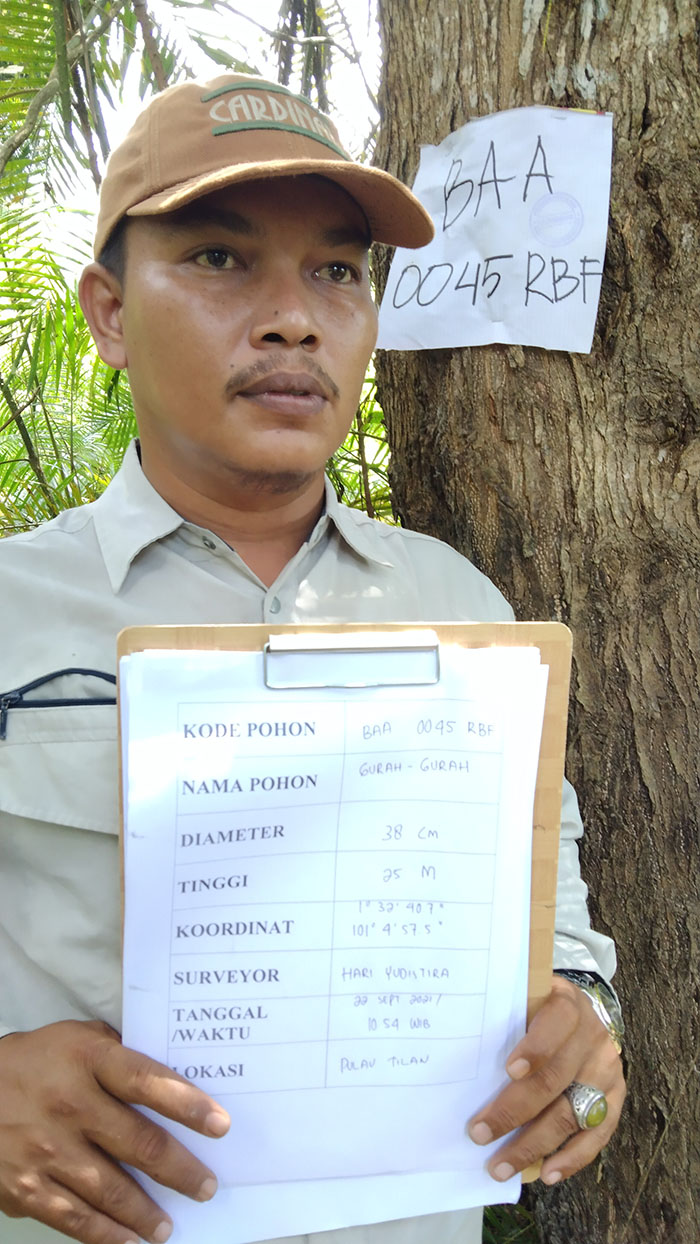 CARDINAL
BAA
0045 RBF
KODE POHON BAA 0045 RBF
NAMA POHON GURAH - GURAH
DIAMETER 38 CM
TINGGI 25 M
KOORDINAT 1° 32' 40.7"
101° 4' 57.5"
SURVEYOR HARI YUDISTIRA
TANGGAL 22 SEPT 2021/
/WAKTU 10:54 WIB
LOKASI PULAU TILAN